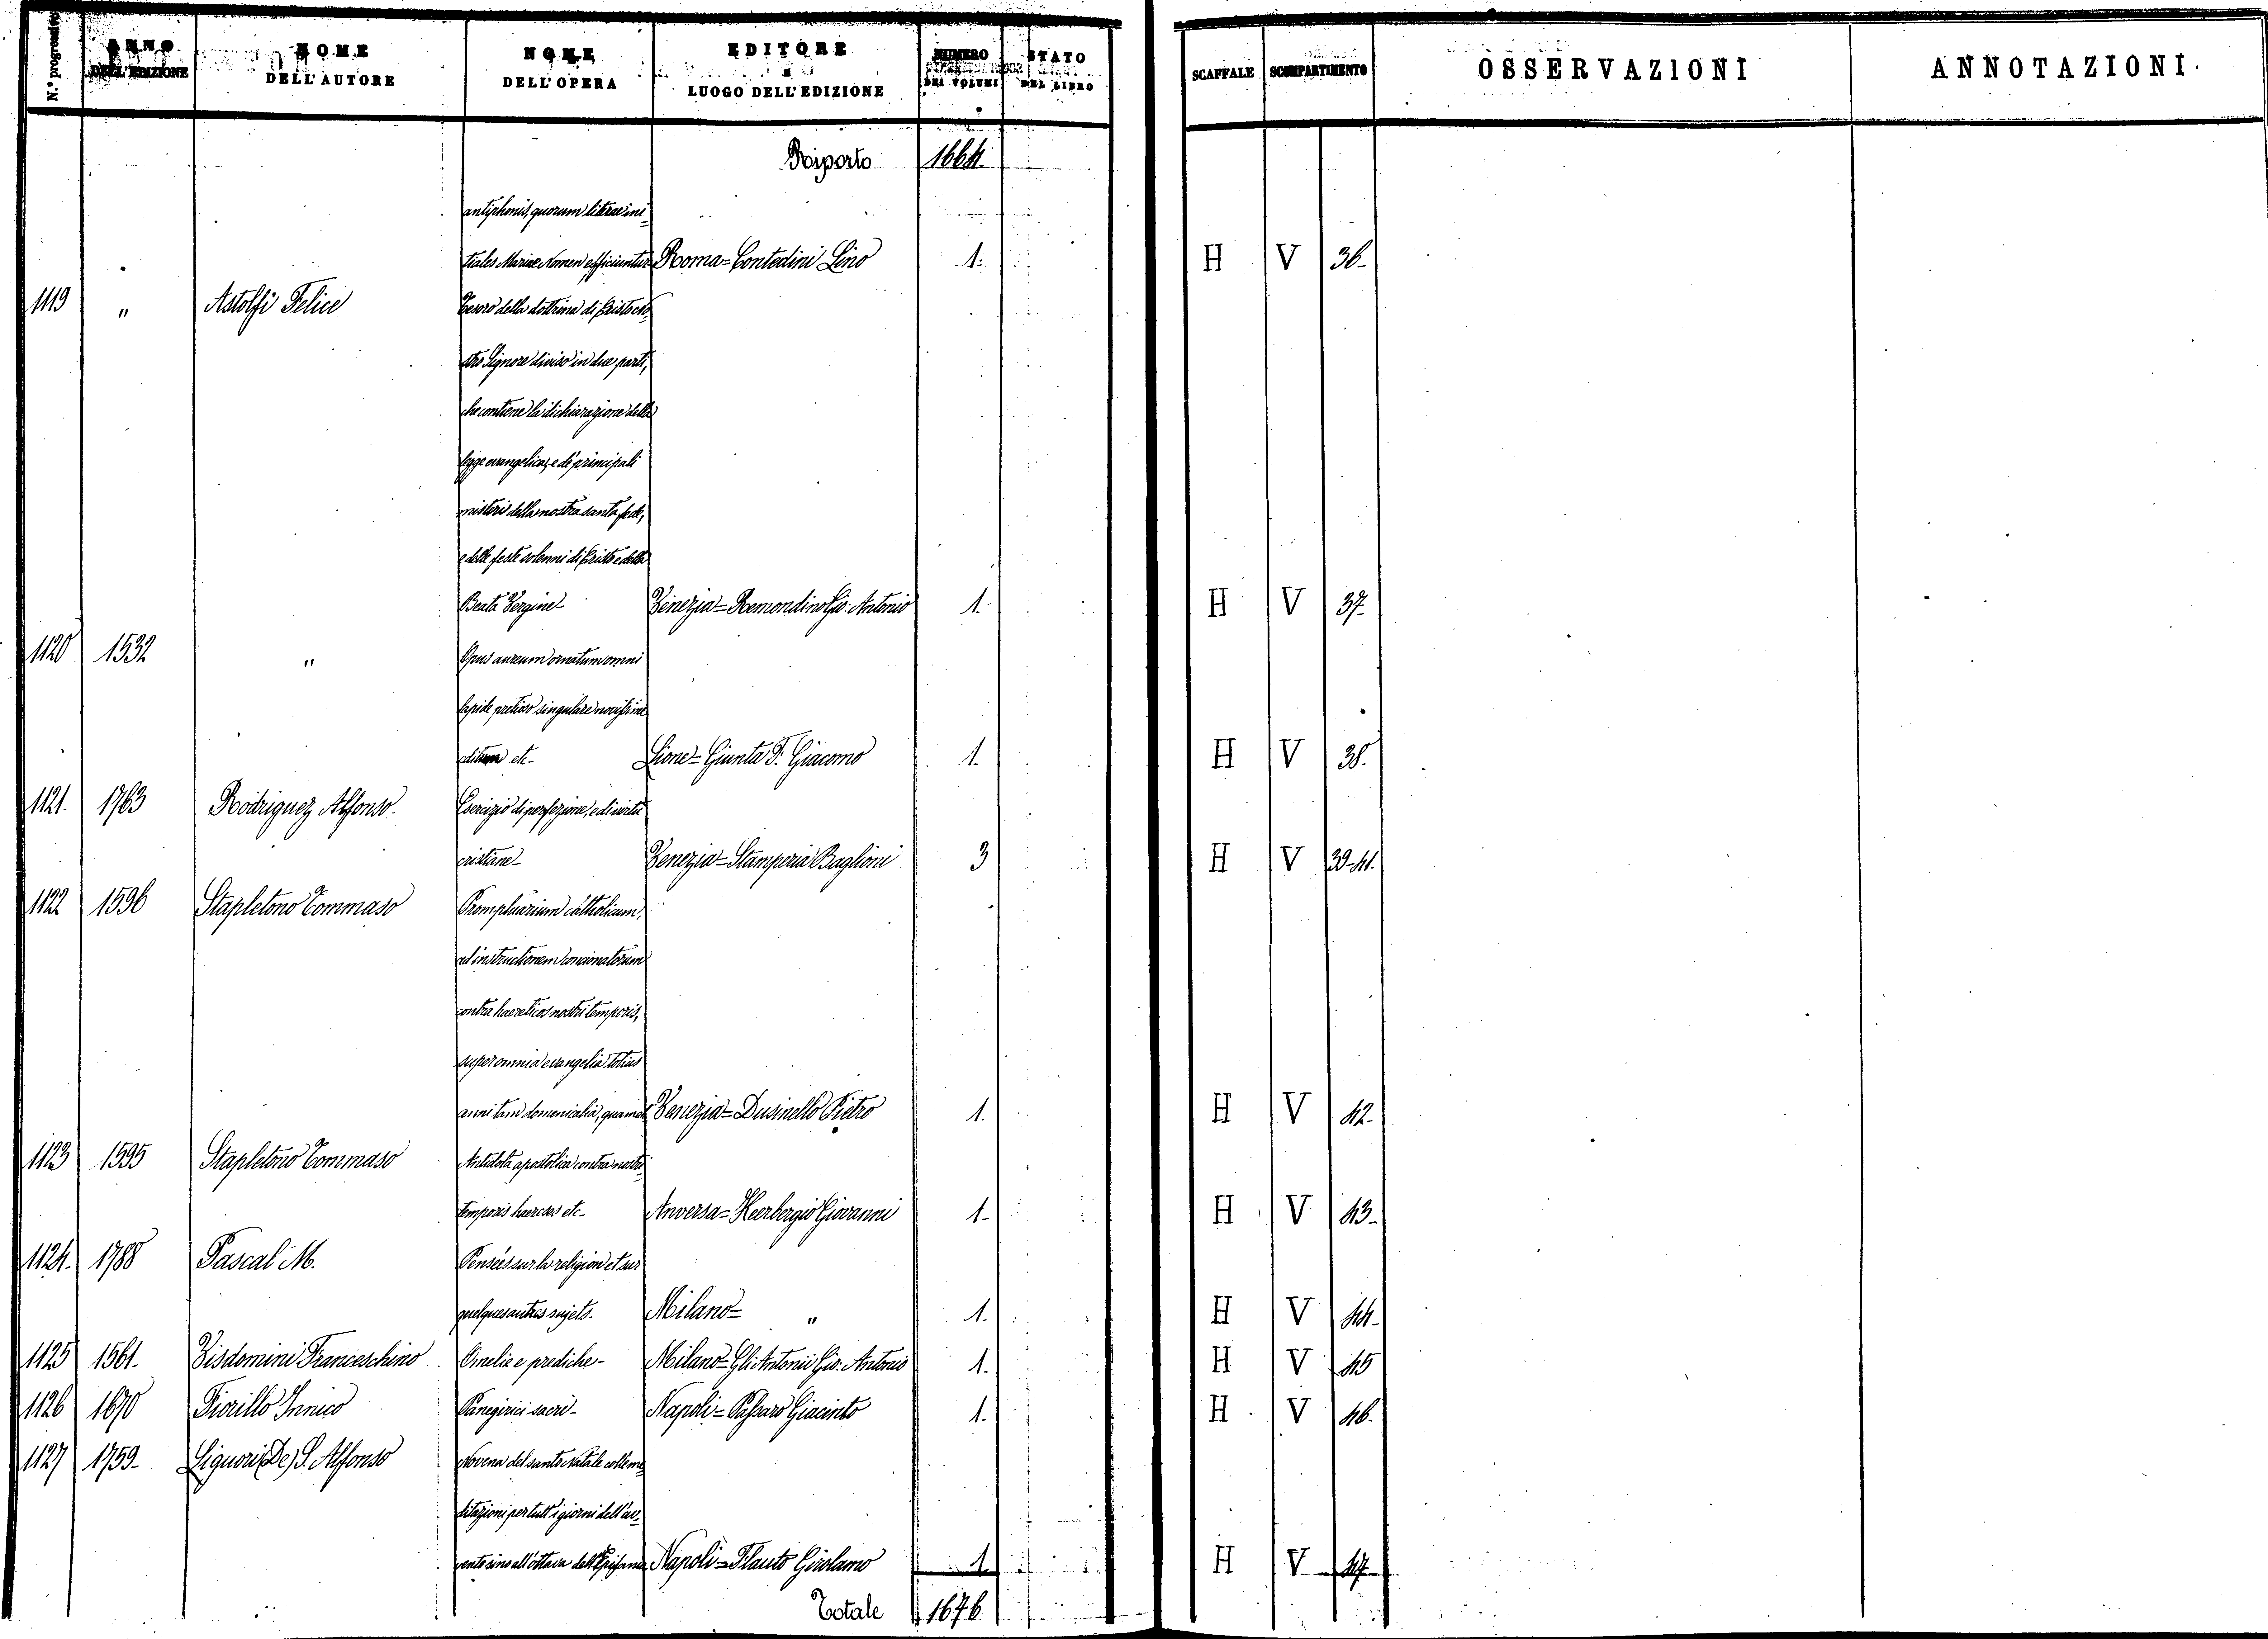 N.° progressivo ANNO DELL'EDIZIONE NOME DELL'AUTORE NOME DELL'OPERA EDITORE E LUOGO DELL'EDIZIONE NUMERO DEI VOLUMI STATO DEL LIBRO SCAFFALE SCOMPARTIMENTO OSSERVAZIONI ANNOTAZIONI.
Riporto 1664.
antiphonis, quorum literae ini-
tiales Mariae Nomen efficiuntur Roma = Contedini Lino 1. H V 36.
1119 " Astolfi Felice Tesoro della dottrina di Cristo no-
stro Signore diviso in due parti,
che contiene la dichiarazione della
legge evangelica, e de' principali
misteri della nostra santa fede,
e delle feste solenni di Cristo e della
Beata Vergine- Venezia = Remondino Gio: Antonio 1. H V 37.
1120 1532 " Opus aureum ornatum omni
lapide pretioso singulare novissime
editum etc- Lione = Giunta F. Giacomo 1. H V 38.
1121. 1763 Rodriguez Alfonso. Esercizio di perfezione, e di virtù
cristiane- Venezia = Stamperia Baglioni 3 H V 39-41.
1122 1596 Stapletono Tommaso Promptuarium catholicum,
ad instructionem concionatorum
contra haereticos nostri temporis,
super omnia evangelia totius
anni tam domenicalia, quam etc Venezia = Dusinello Pietro 1. H V 42.
1123 1595 Stapletono Tommaso Antidota apostolica contra nostri
temporis haereses etc- Anversa = Keerbergio Giovanni 1- H V 43-
1124. 1788 Pascal M. Pensées sur la religion et sur
quelques autres sujets- Milano = " 1. H V 44-
1125 1561. Visdomini Franceschino Omelie e prediche- Milano = Gli Antonii Gio: Antonio 1. H V 45
1126 1670 Fiorillo Innico Panegirici sacri- Napoli = Passaro Giacinto 1. H V 46.
1127 1759- Liguori (De) S. Alfonso Novena del santo Natale colle me-
ditazioni per tutt'i giorni dell'av-
vento sino all'ottava dell'Epifania Napoli = Flauto Girolamo 1. H V 47
Totale 1676.